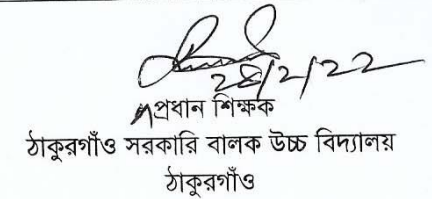 28/2/22
প্রধান শিক্ষক
ঠাকুরগাঁও সরকারি বালক উচ্চ বিদ্যালয়
ঠাকুরগাঁও